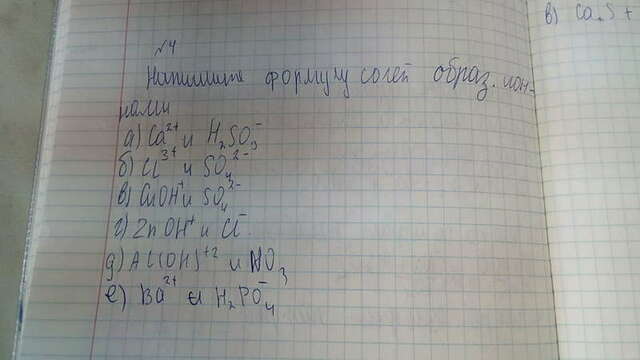 в) Ca.S +
№4
Напишите формулу солей образ. ион-
нами
а) Ca²⁺ и H₂SO₃⁻
б) Cl³⁺ и SO₄²⁻
в) CuOH⁺ и SO₄²⁻
г) ZnOH⁺ и Cl⁻
д) Al(OH)⁺² и NO₃
е) Ba²⁺ и H₂PO₄⁻